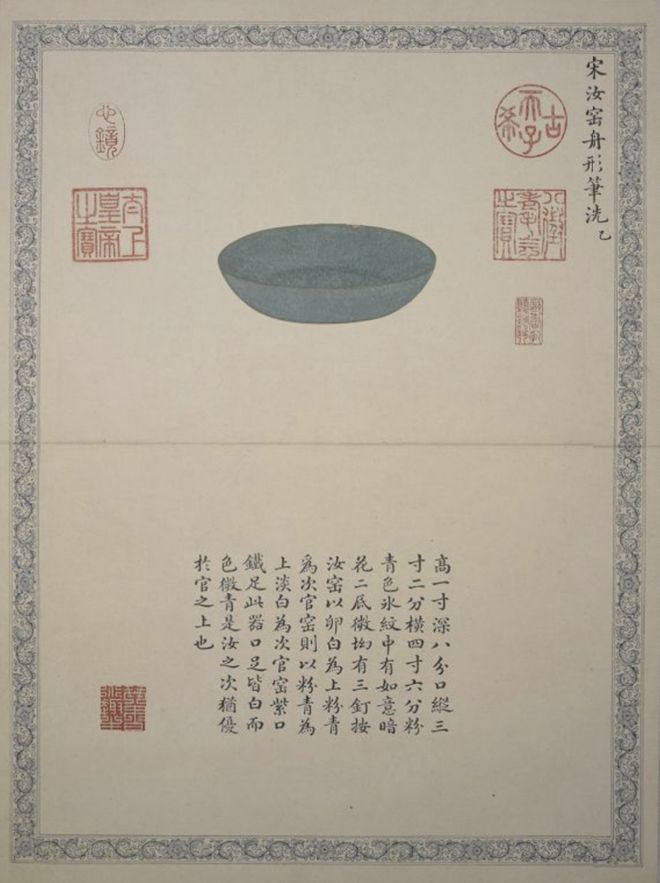 宋汝窑舟形筆洗乙
古稀天子
八徵耄念之寶
太上皇帝之寶
高一寸深八分口縱三
寸二分橫四寸六分粉
青色氷紋中有如意暗
花二底微坳有三釘按
汝窑以卵白為上粉青
為次官窑則以粉青為
上淡白為次官窑紫口
鐵足此器口足皆白而
色微青是汝之次猶優
於官之上也